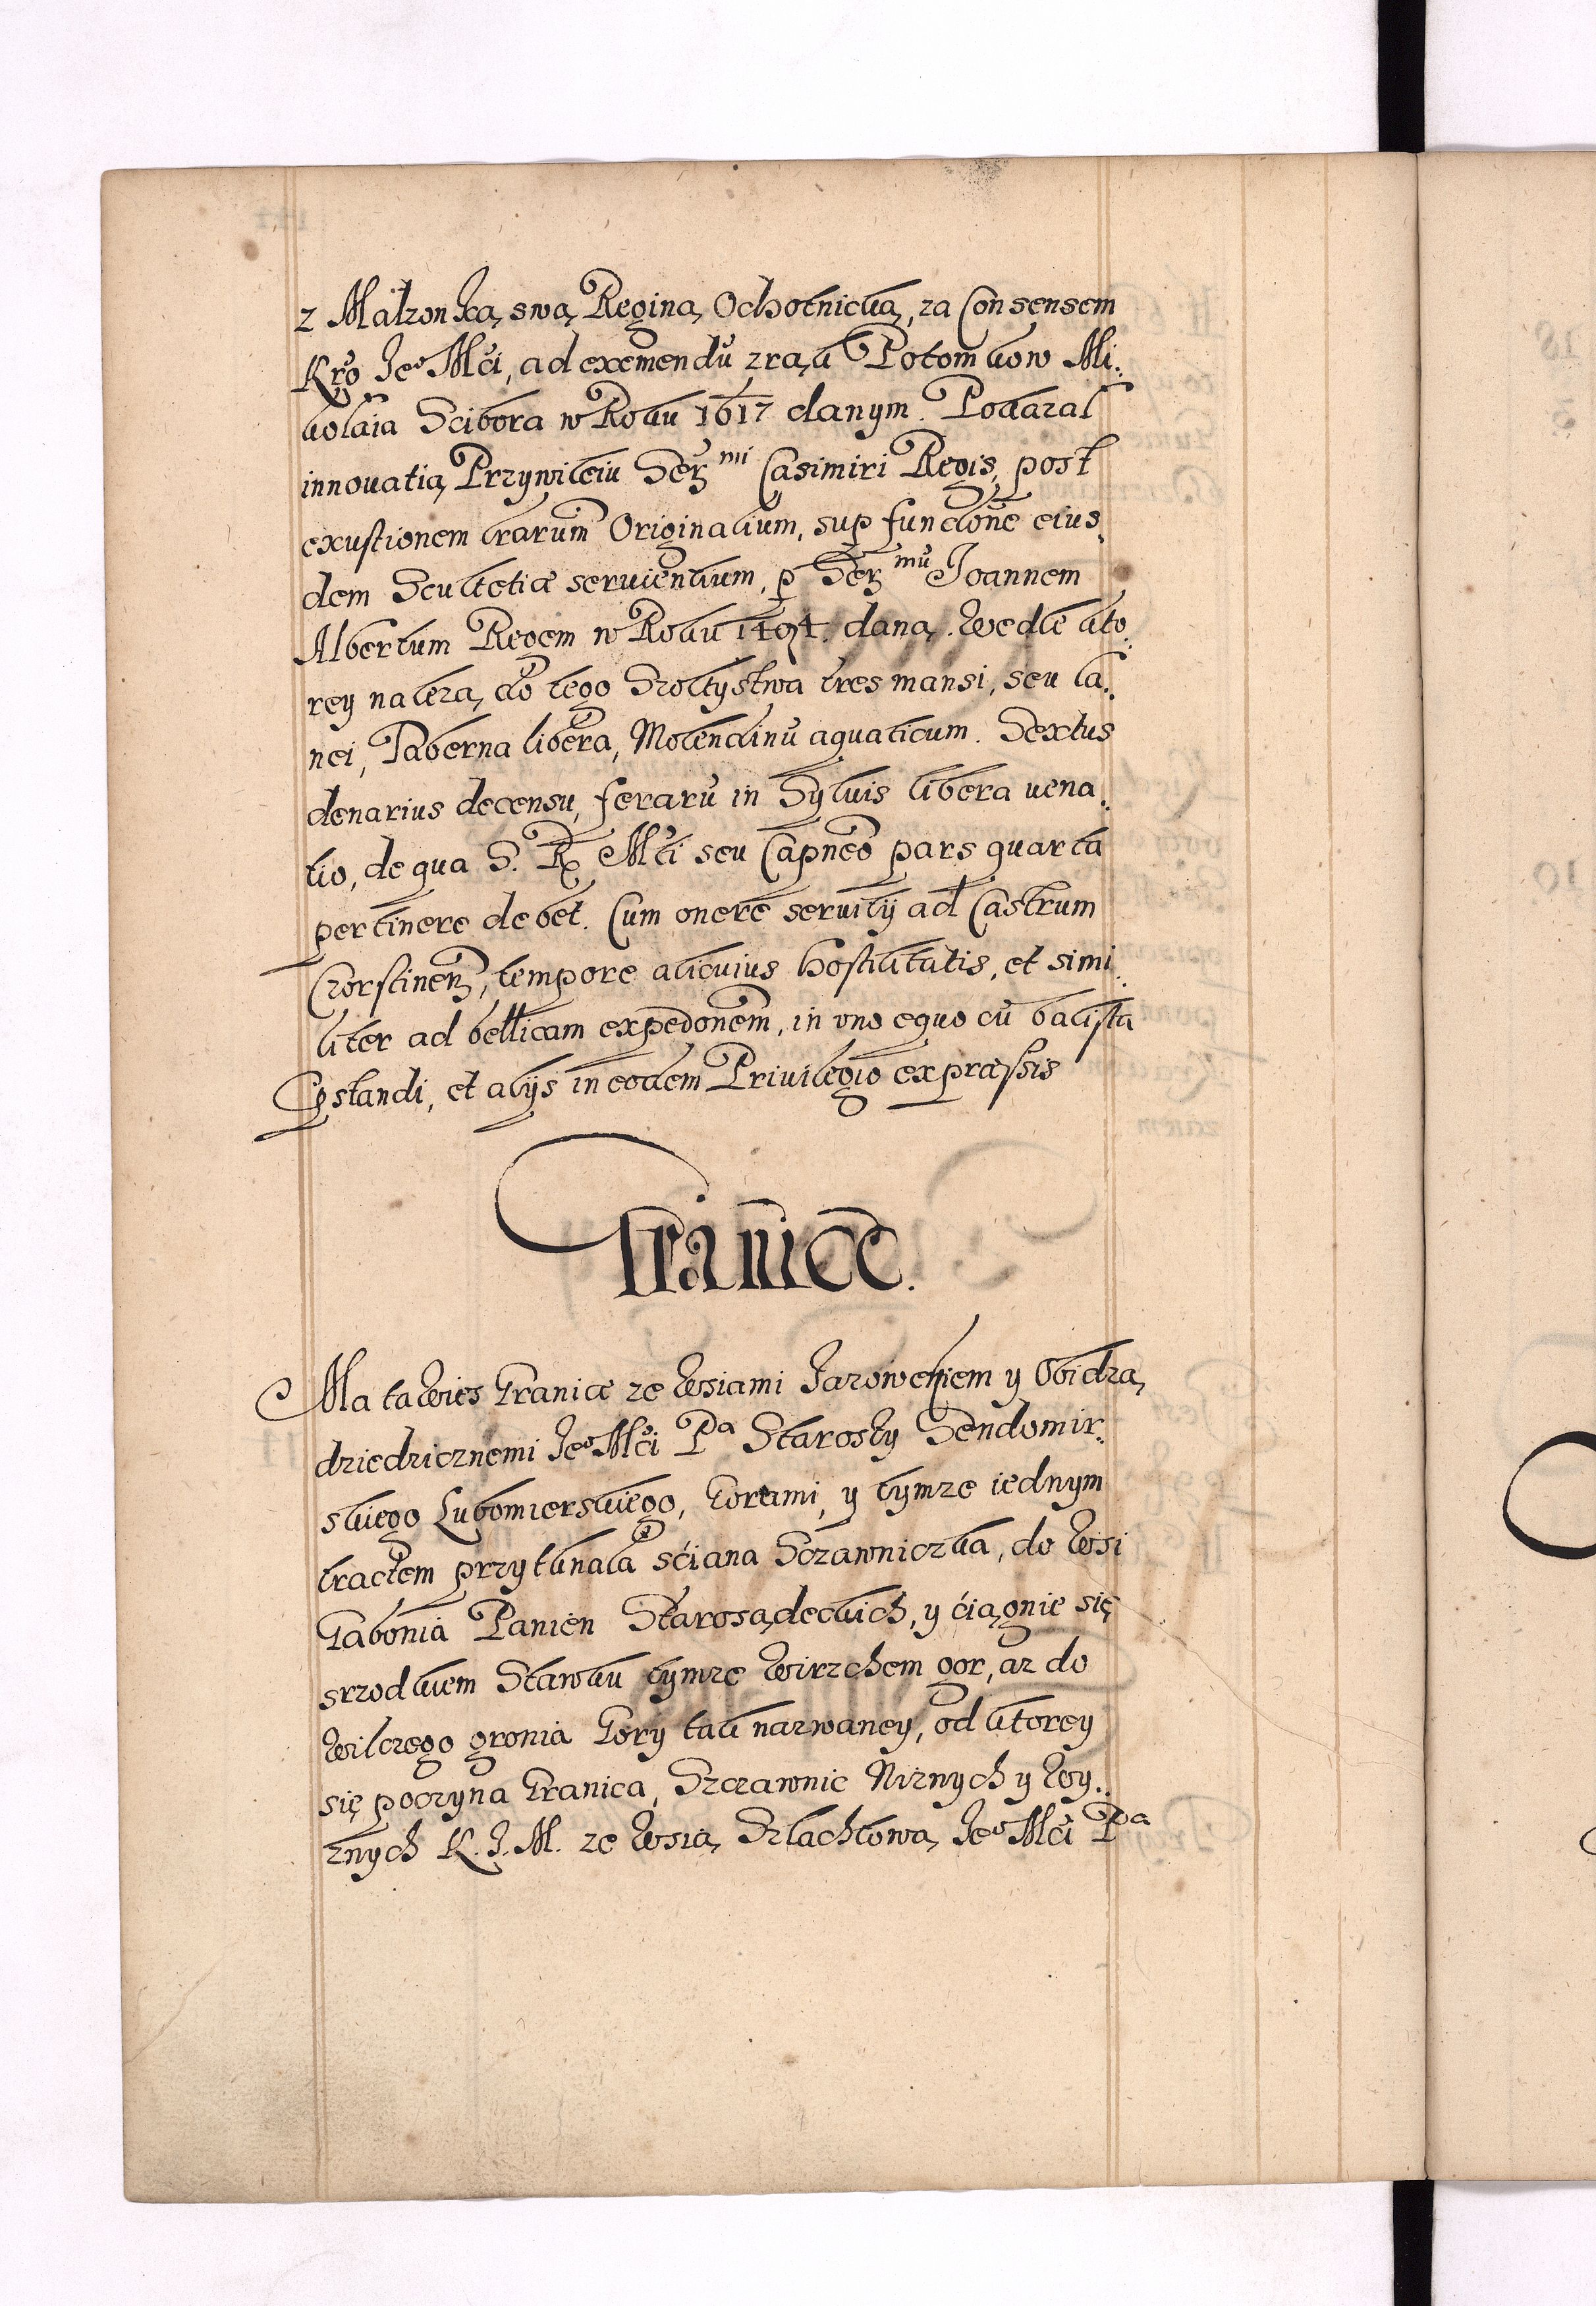 z Małzonką swą Reginą Ochotnicką, za Consensem
Kro Jeº Mći, ad exemendū z rąk Potomkow Mi:
kołaia Scibora w Roku 1617 danym. Pokazał
innouatią Przywileiu Serᵐⁱ Casimiri Regis, post
exustionem lrarum Originalium, sup functione eius,
dem Scultetiæ seruientium, p Serᵐū Joannem
Albertum Regem w Roku 1494. daną. Wedle kto:
rey należą do tego Szołtystwa tres mansi, seu la:
nei, Taberna libera, Molendinū aquaticum. Sextus
denarius de censu, ferarū in Syluis libera uena:
tio, de qua S. R. Mći seu Capneo pars quarta
pertinere debet. Cum onere seruitij ad Castrum
Czorstinen, tempore alicuius hostilitatis, et simi:
liter ad bellicam expedonem, in uno equo cū balista
pstandi, et alijs in eodem Priuilegio expræssis
Granice.
Ma ta Wies Granice ze Wsiami Jazowskiem y Obidzą
dziedzicznemi Jeº Mći Pª Starosty Sendomir:
skiego Lubomierskiego, Gorami, y tymże iednym
tractem przytknęła sćiana Sczawniczka, do Wsi
Gabonia Panien Starosądeckich, y ćiągnie się
srzodkiem Stawku tymże Wirzchem gor, aż do
Wilczego gronia Gory tak nazwaney, od ktorey
się poczyna Granica, Szczawnic Niżnych y Wy:
żnych K. J. M. ze Wsią Szlachtową Jeº Mći Pª